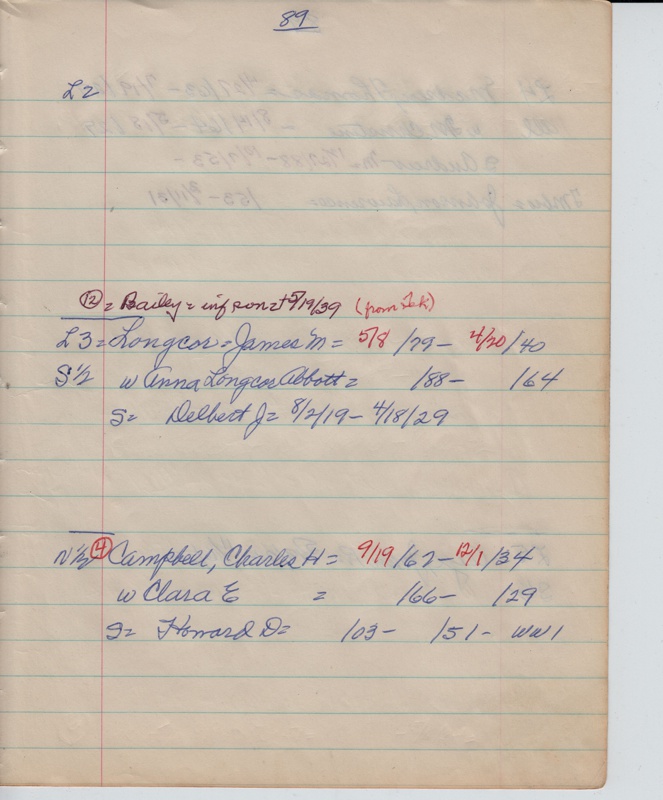 89
L2
⑫ = Bailey = inf son = + 5/19/39 (from Sek)
L3 = Longcor = James M = 5/8/79 - 4/20/40
S 1/2 w Anna Longcor Abbott = /88 - /64
S = Delbert J = 8/2/19 - 4/18/29
N 1/2 ④ Campbell, Charles H = 9/19/62 - 12/1/34
w Clara E = /66 - /29
S = Howard D = /03 - /51 - WW1